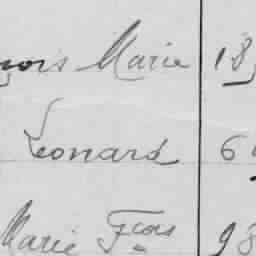 Marie 18
Leonard 6
Marie Fcois 98